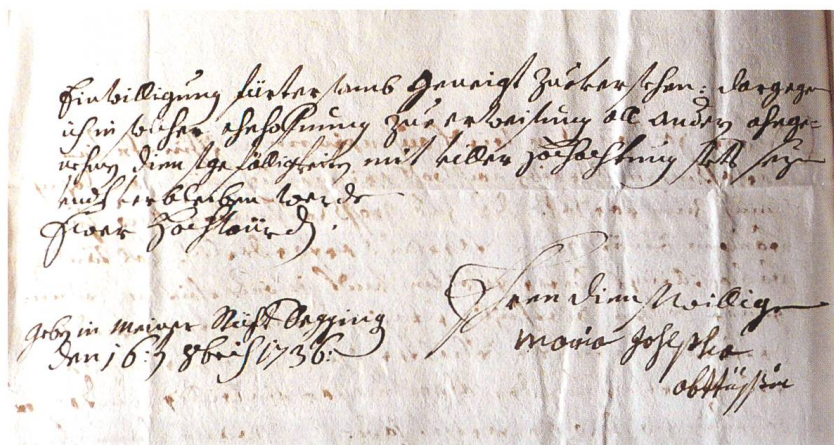 Einwilligung fürtersamb geneigt zue ersehen: dargegen
ich in solcher zue erweisung all ander ange-
nehmen dienstgefälligkeiten mit aller Hochachtung stets seyn
undt verbleiben werde
Euer Hochwürd.
Geben in meiner Stüfft Segging
den 16: 8bris 1736:
Dienstwillige
Maria Josepha
abbttissin